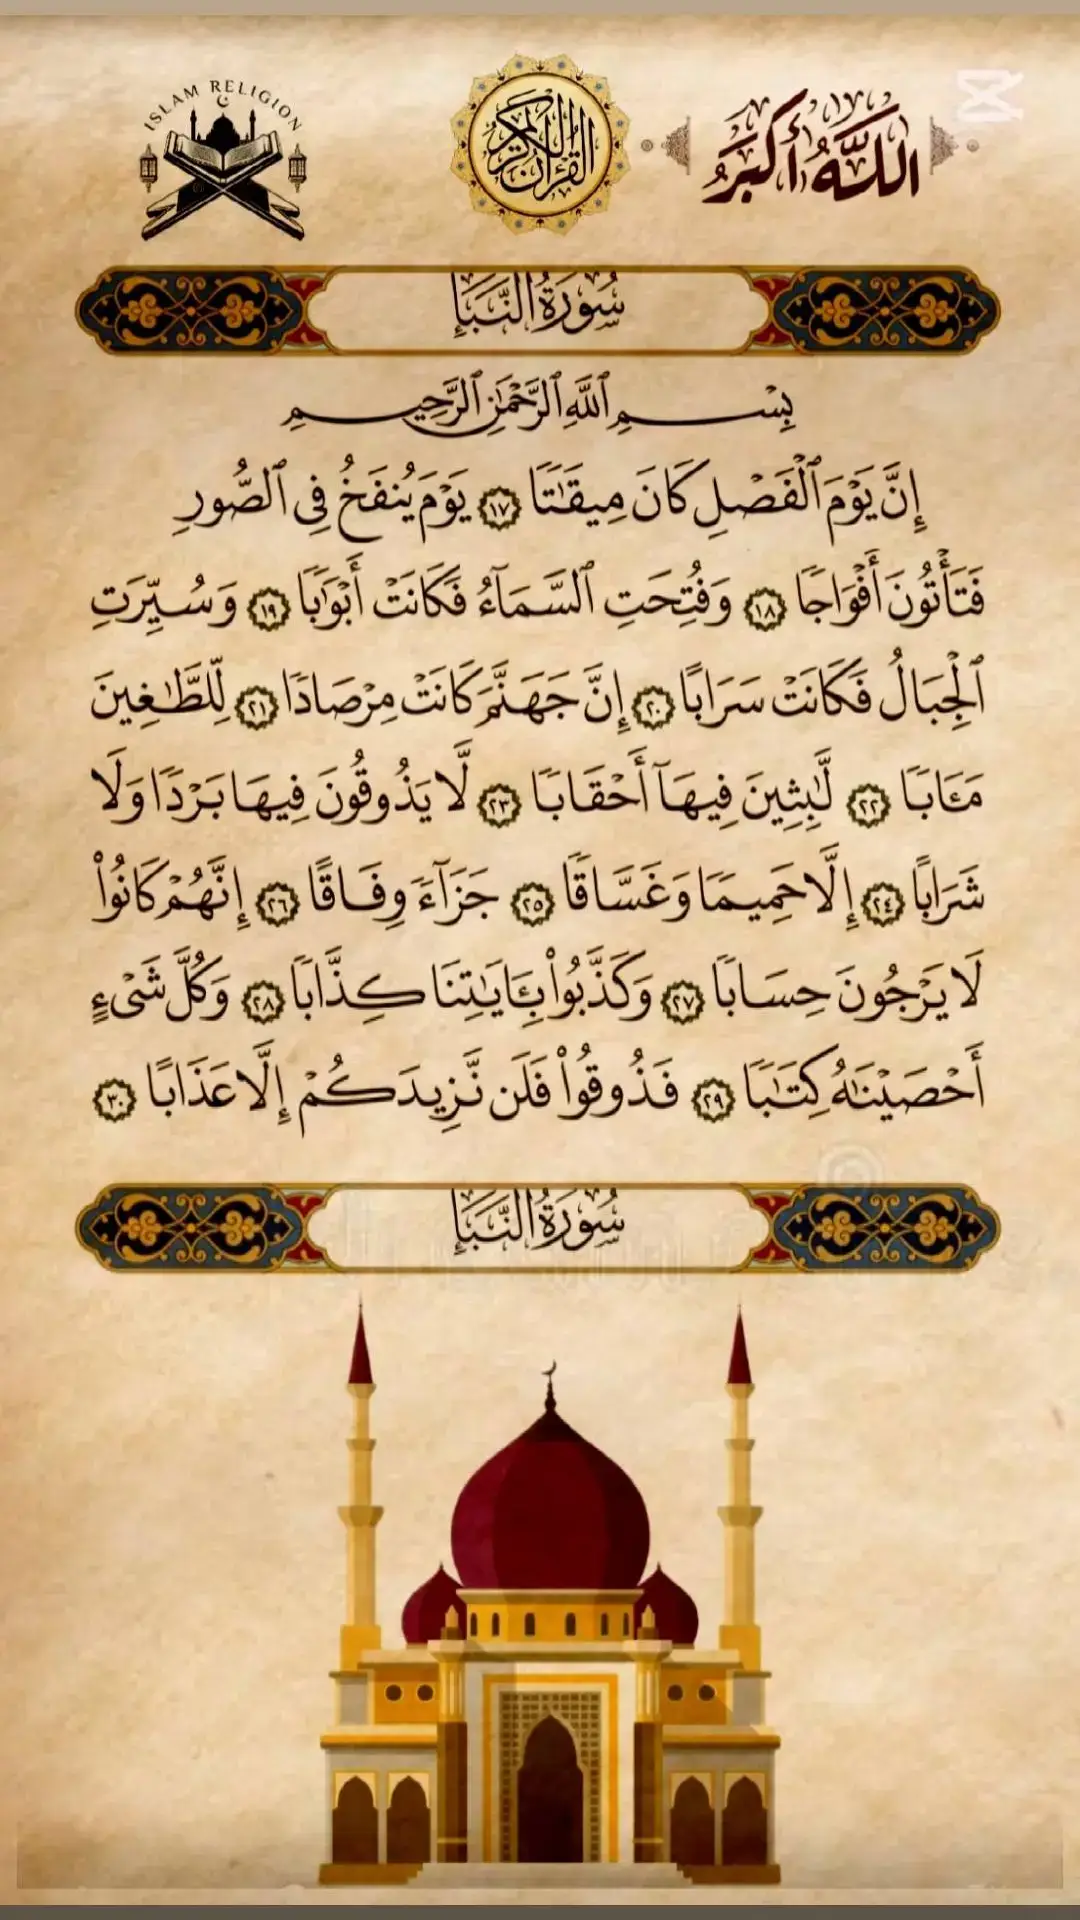 ISLAM RELIGION
القرآن الكريم
اللَّهُ أَكْبَرُ
سُورَةُ النَّبَإِ
بِسْمِ ٱللَّهِ ٱلرَّحْمَٰنِ ٱلرَّحِيمِ
إِنَّ يَوْمَ ٱلْفَصْلِ كَانَ مِيقَٰتًا ١٧ يَوْمَ يُنفَخُ فِى ٱلصُّورِ
فَتَأْتُونَ أَفْوَاجًا ١٨ وَفُتِحَتِ ٱلسَّمَآءُ فَكَانَتْ أَبْوَٰبًا ١٩ وَسُيِّرَتِ
ٱلْجِبَالُ فَكَانَتْ سَرَابًا ٢٠ إِنَّ جَهَنَّمَ كَانَتْ مِرْصَادًا ٢١ لِّلطَّٰغِينَ
مَـَٔابًا ٢٢ لَّٰبِثِينَ فِيهَآ أَحْقَابًا ٢٣ لَّا يَذُوقُونَ فِيهَا بَرْدًا وَلَا
شَرَابًا ٢٤ إِلَّا حَمِيمًا وَغَسَّاقًا ٢٥ جَزَآءً وِفَاقًا ٢٦ إِنَّهُمْ كَانُوا۟
لَا يَرْجُونَ حِسَابًا ٢٧ وَكَذَّبُوا۟ بِـَٔايَٰتِنَا كِذَّابًا ٢٨ وَكُلَّ شَىْءٍ
أَحْصَيْنَٰهُ كِتَٰبًا ٢٩ فَذُوقُوا۟ فَلَن نَّزِيدَكُمْ إِلَّا عَذَابًا ٣٠
سُورَةُ النَّبَإِ